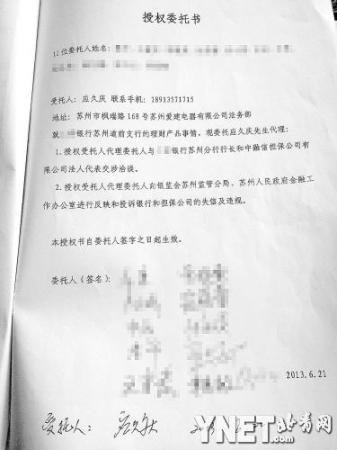 授权委托书
12位委托人姓名：
受托人：应久庆 联系手机：18913571715
地址：苏州市枫瑞路168号苏州爱建电器有限公司法务部
就 银行苏州道前支行的理财产品事情，现委托应久庆先生代理：
1.授权受托人代理委托人与 银行苏州分行行长和中融信担保公司有
限公司法人代表交涉洽谈。
2.授权受托人代理委托人向银监会苏州监管分局、苏州人民政府金融工
作办公室进行反映和投诉银行和担保公司的失信及违规。
本授权书自委托人签字之日起生效。
委托人（签名）：
2013.6.21
受托人：应久庆
YNET.com 北青网